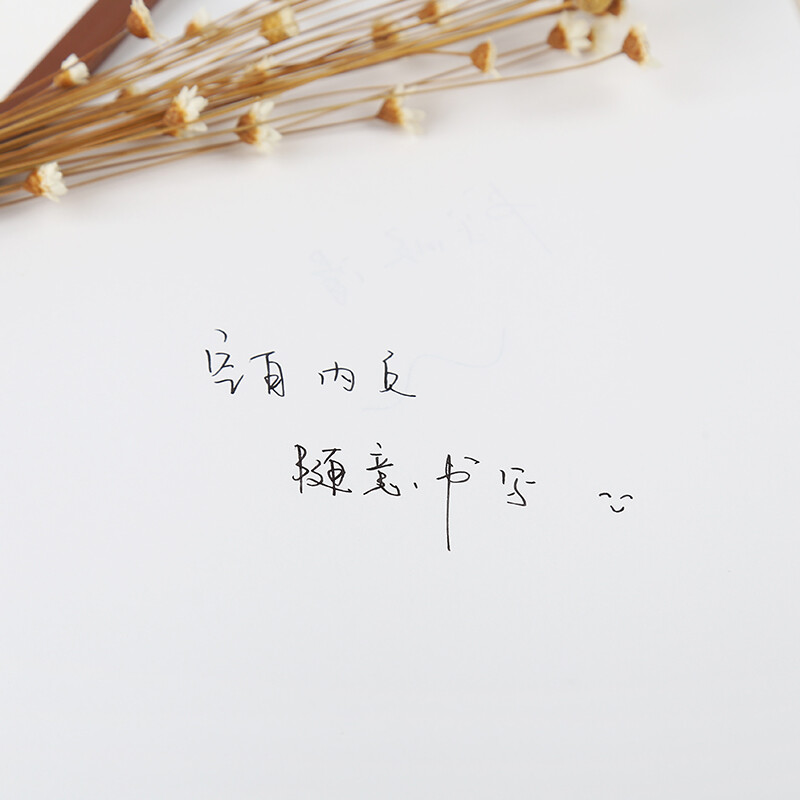 空白内页
随意书写